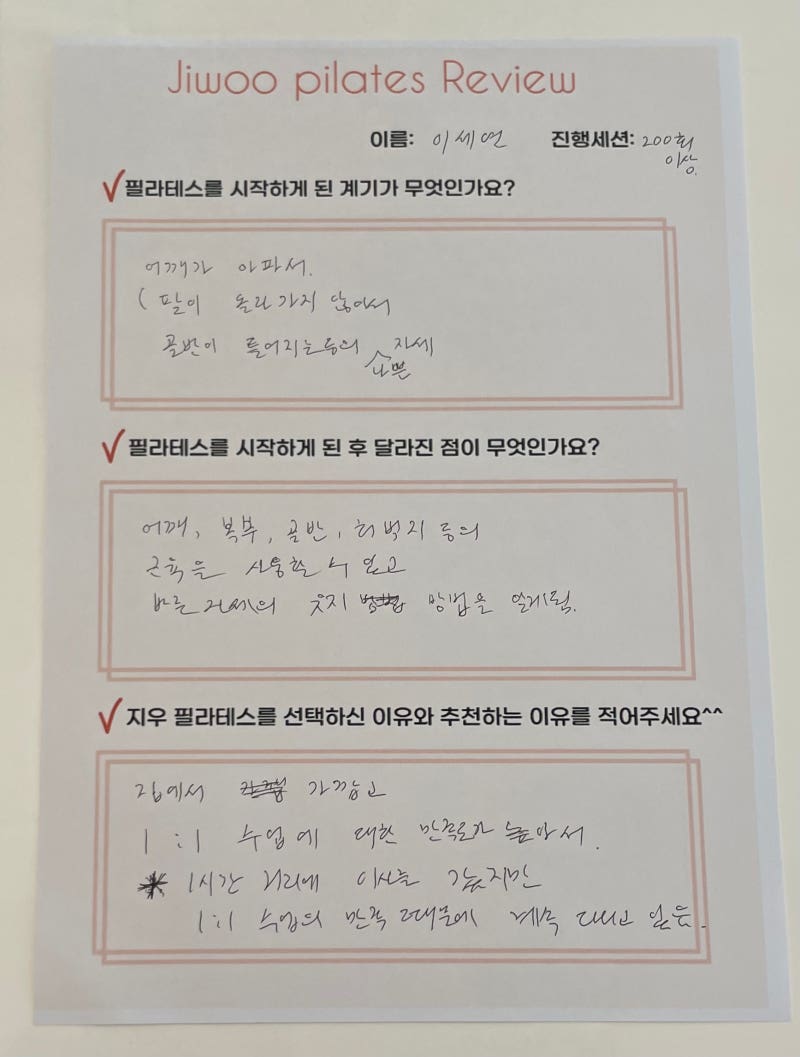 Jiwoo pilates Review
이름: 이세연 진행세션: 200회
이상.
필라테스를 시작하게 된 계기가 무엇인가요?
어깨가 아파서.
( 팔이 올라가지 않아서
골반이 틀어지는등의 나쁜 자세
필라테스를 시작하게 된 후 달라진 점이 무엇인가요?
어깨, 복부, 골반, 허벅지 등의
근육을 사용할 수 있고
바른 자세의 유지 방법을 알게됨.
지우 필라테스를 선택하신 이유와 추천하는 이유를 적어주세요^^
집에서 가깝고
1:1 수업에 대한 만족도가 높아서.
* 1시간 거리에 이사를 갔지만
1:1 수업의 만족 때문에 계속 다니고 있음.